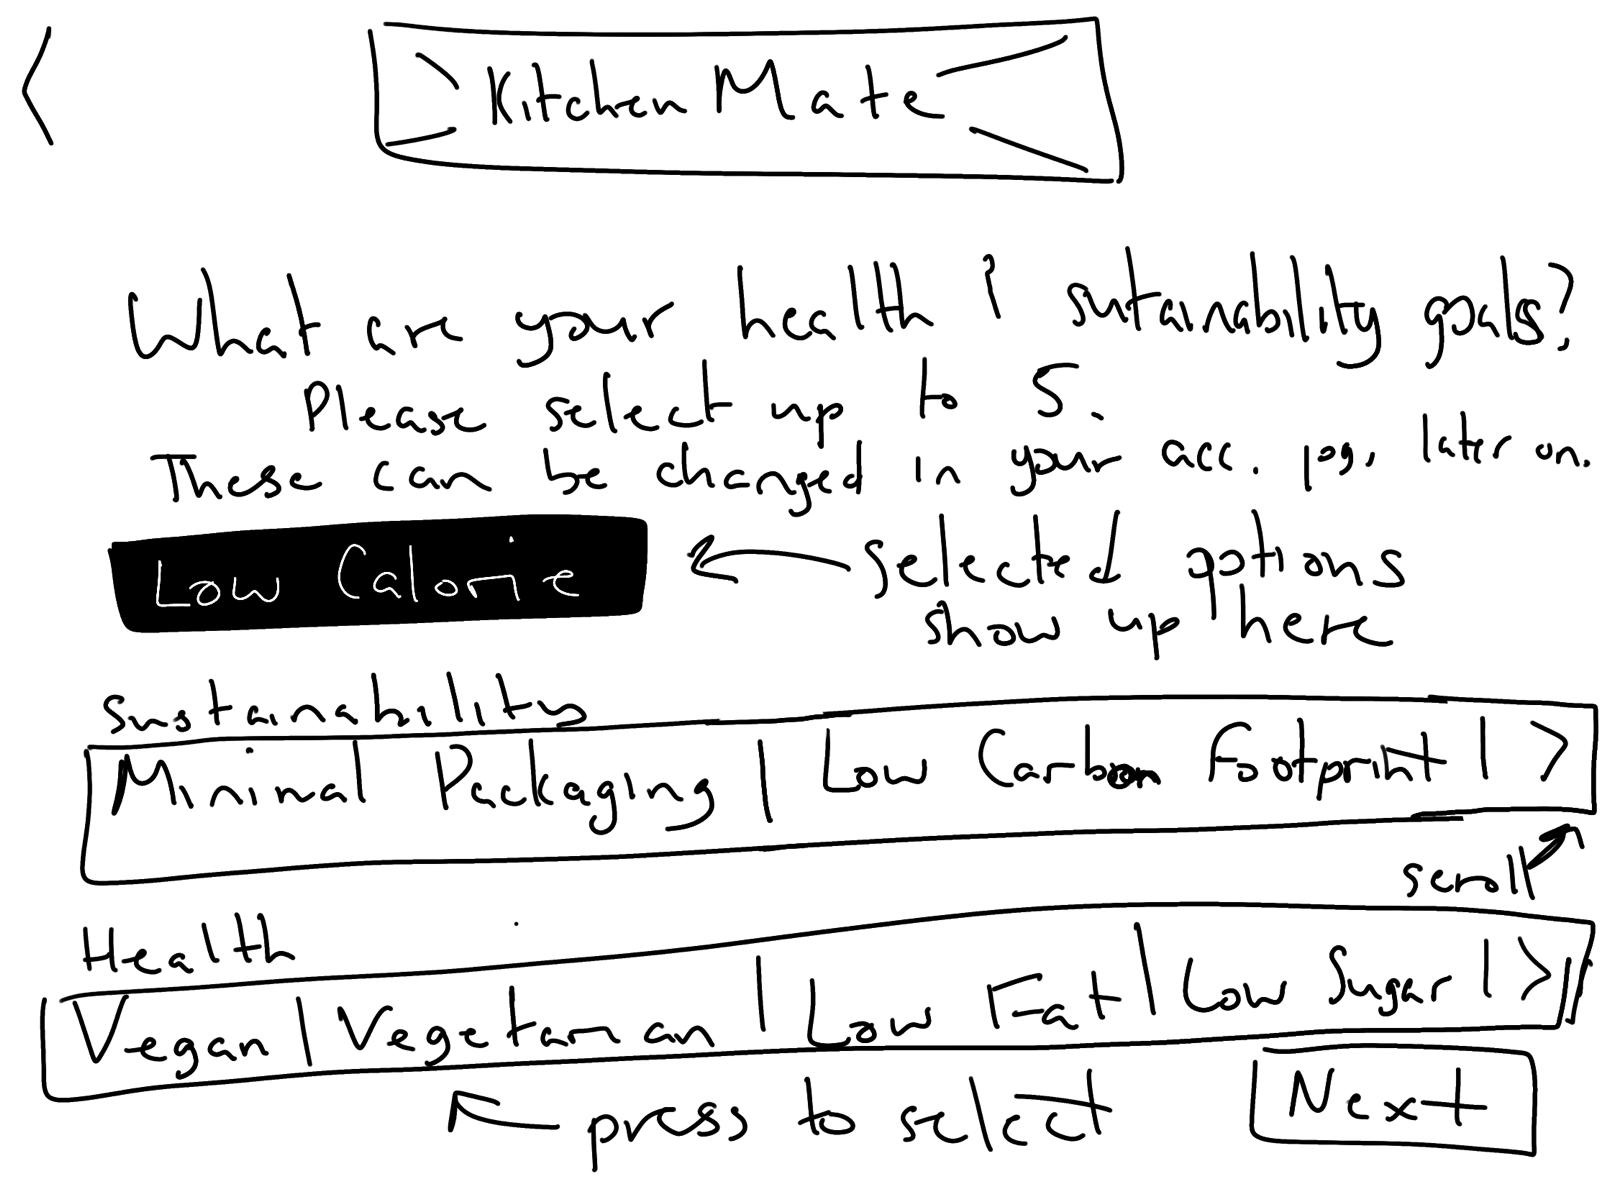 <
Kitchen Mate
What are your health & sutainability goals?
Please select up to 5.
These can be changed in your acc. pg. later on.
Low Calorie
selected options
show up here
Sustainability
Minimal Packaging | Low Carbon Footprint | >
scroll
Health
Vegan | Vegetarian | Low Fat | Low Sugar | >
press to select
Next